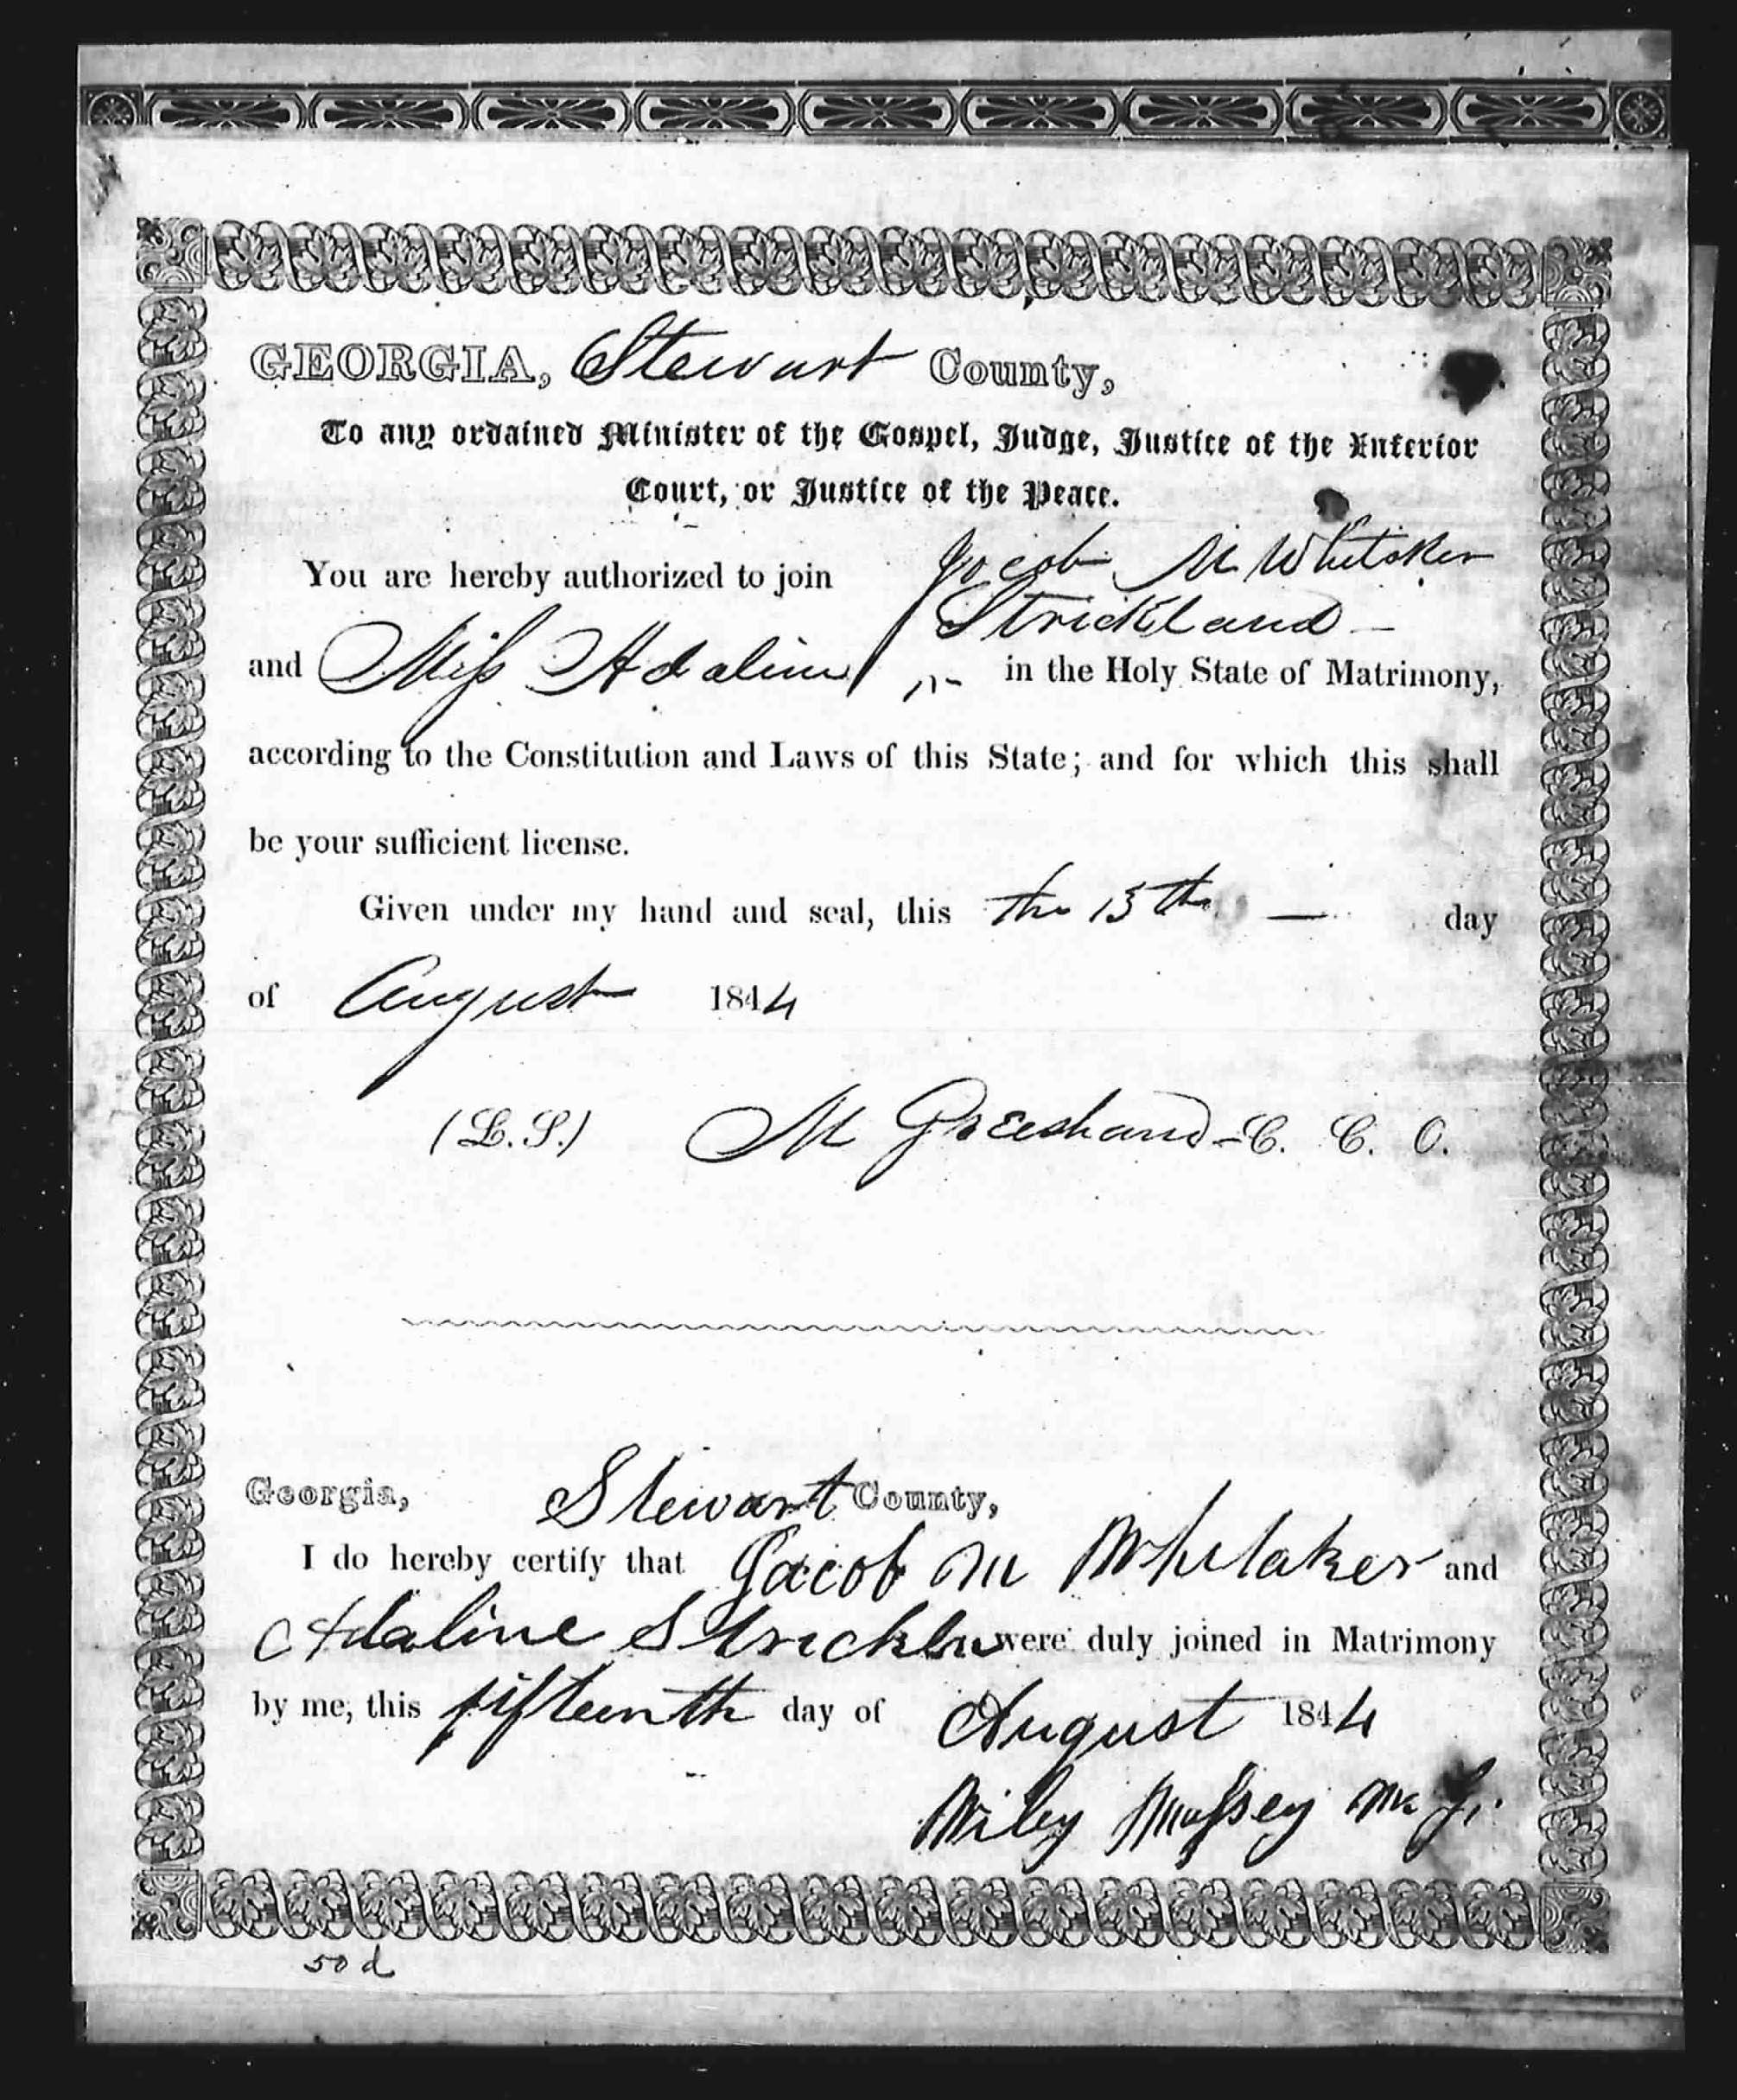 GEORGIA, Stewart County,
To any ordained Minister of the Gospel, Judge, Justice of the Inferior
Court, or Justice of the Peace.
You are hereby authorized to join Jacob M Whitaker
Strickland
and Miss Adaline in the Holy State of Matrimony,
according to the Constitution and Laws of this State; and for which this shall
be your sufficient license.
Given under my hand and seal, this the 15th day
of August 1844
(L.S.) M C. C. O.
Georgia, Stewart County,
I do hereby certify that Jacob M Whitaker and
Adaline were duly joined in Matrimony
by me, this fifteenth day of August 1844
Wiley Massey
50 d